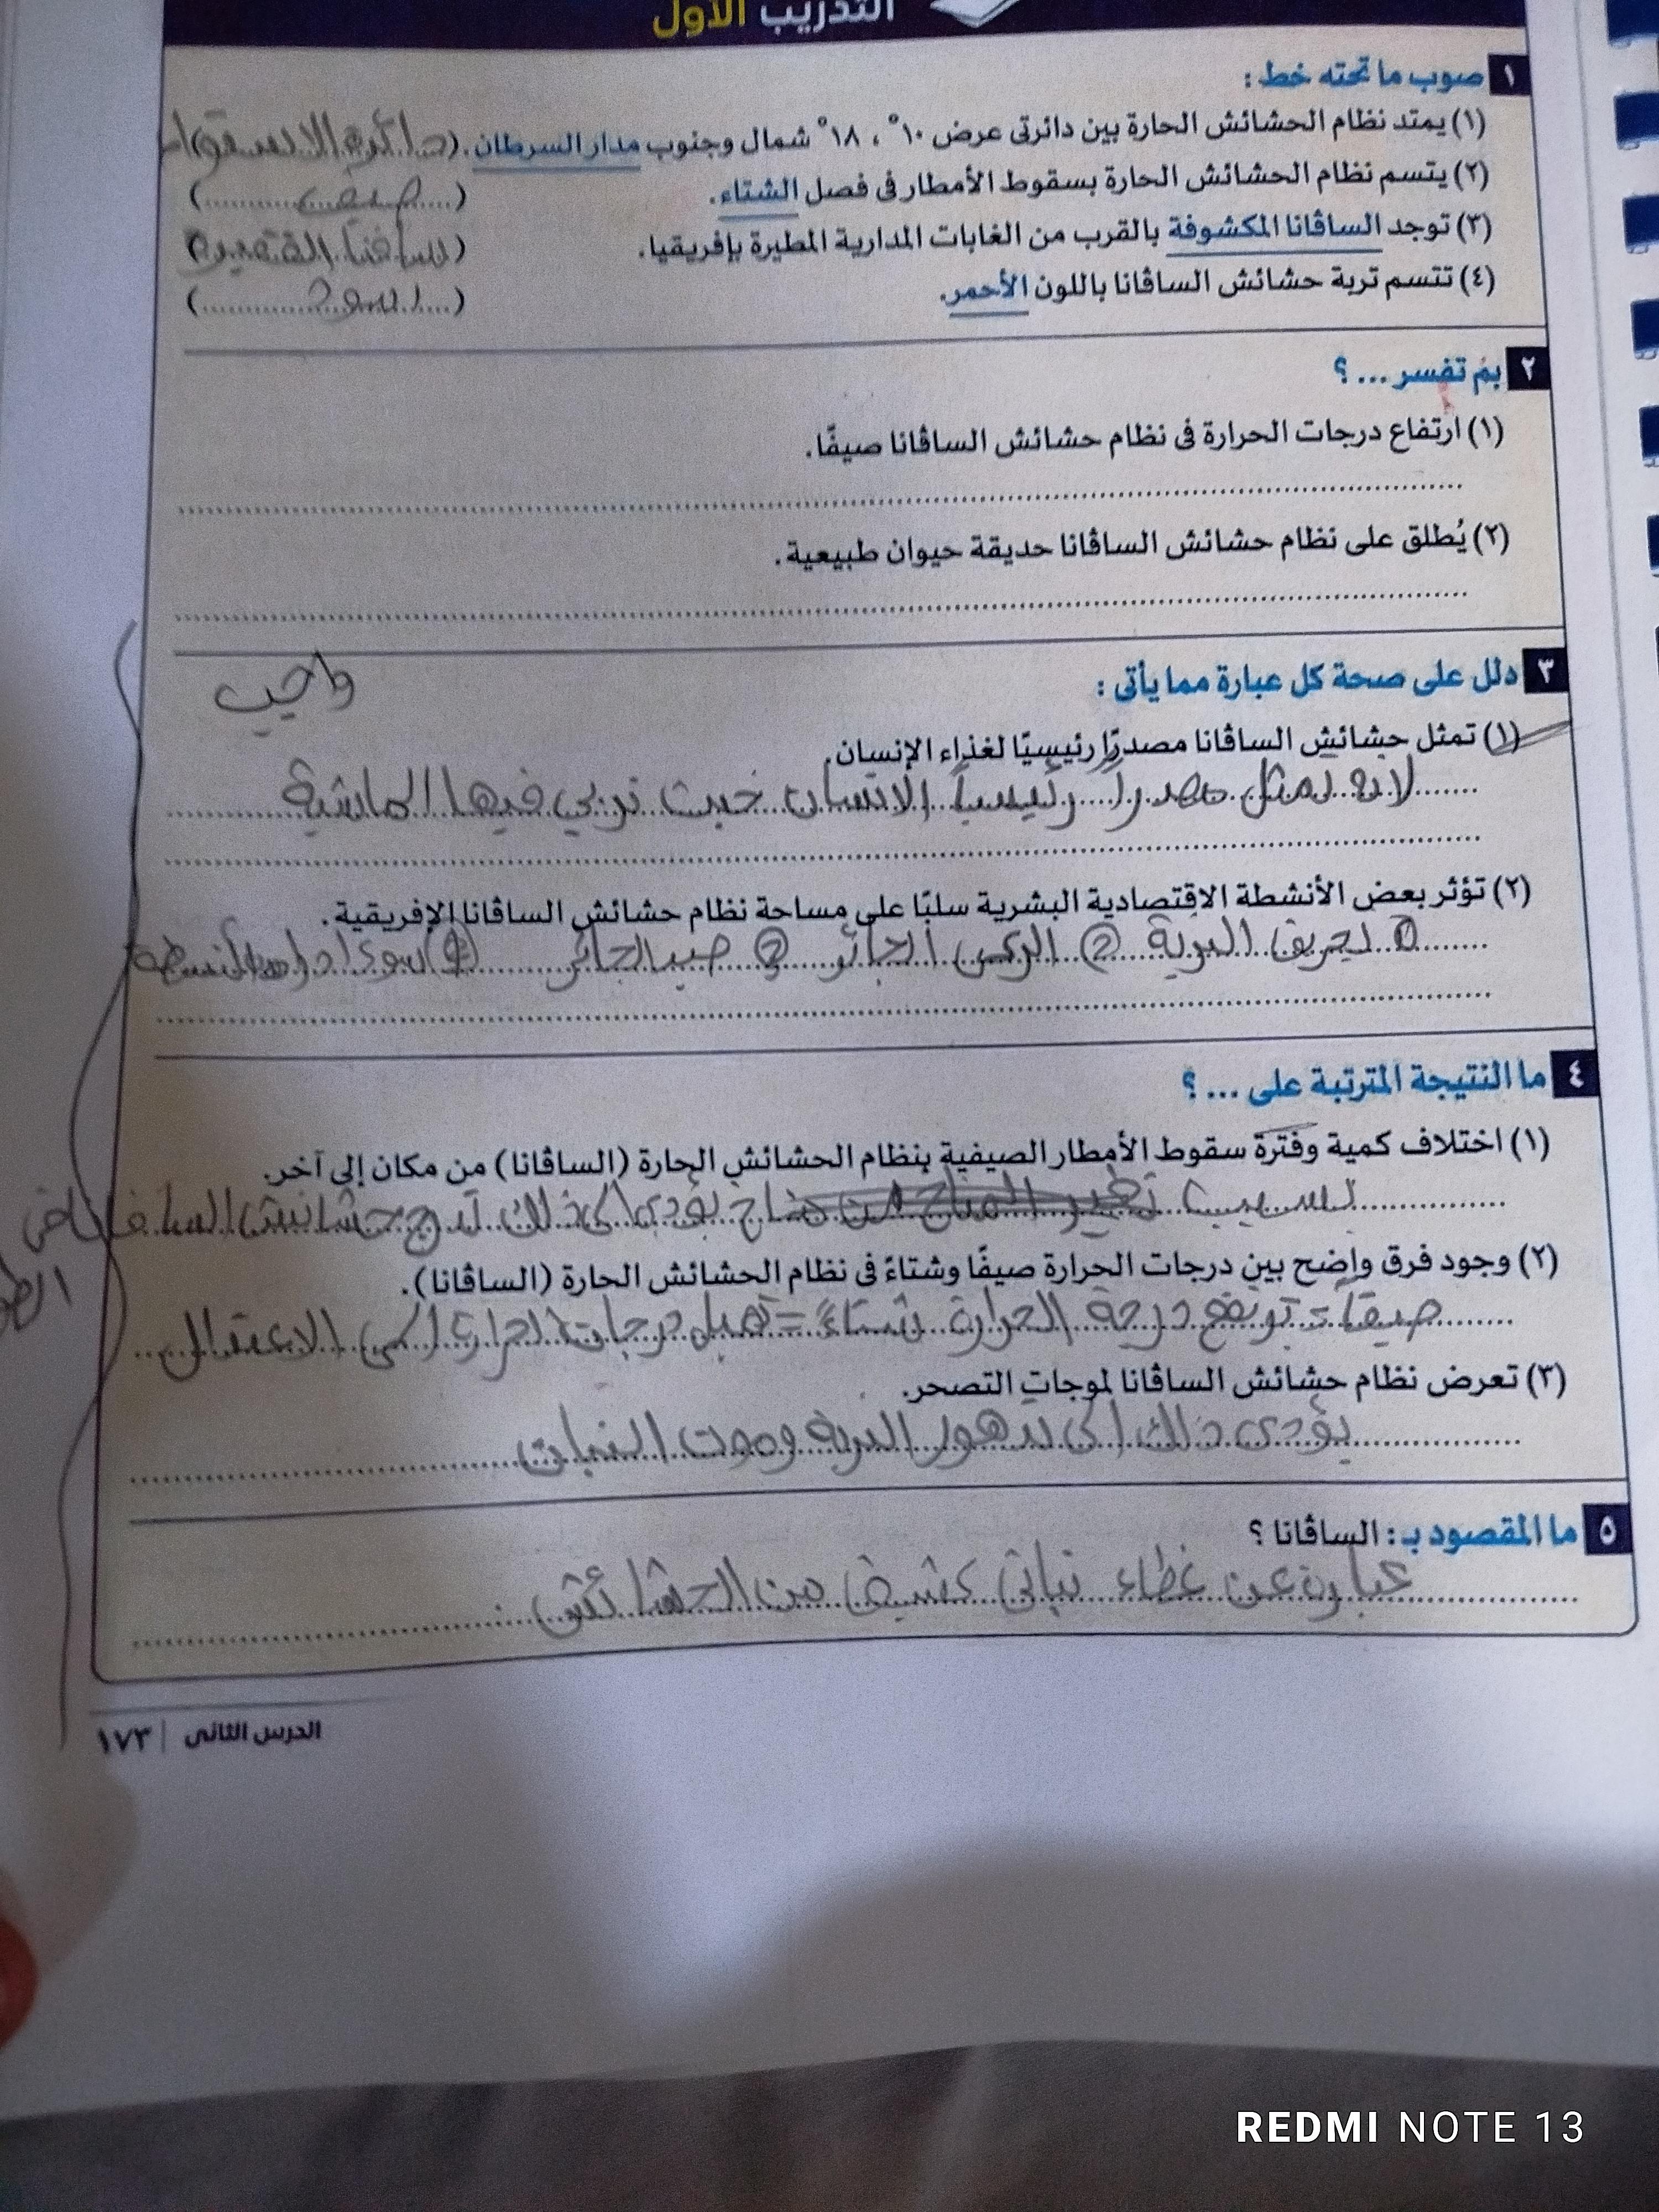 التدريب الأول
١ صوب ما تحته خط :
(١) يمتد نظام الحشائش الحارة بين دائرتى عرض ١٠° ، ١٨° شمال وجنوب مدار السرطان. (دائرة الاستوا
(٢) يتسم نظام الحشائش الحارة بسقوط الأمطار فى فصل الشتاء. (صيف)
(٣) توجد الساڤانا المكشوفة بالقرب من الغابات المدارية المطيرة بإفريقيا. (سافنا القصيرة)
(٤) تتسم تربة حشائش الساڤانا باللون الأحمر. (اسود)
٢ بم تفسر ... ؟
(١) ارتفاع درجات الحرارة فى نظام حشائش الساڤانا صيفًا.
(٢) يُطلق على نظام حشائش الساڤانا حديقة حيوان طبيعية.
واجب
٣ دلل على صحة كل عبارة مما يأتى :
(١) تمثل حشائش الساڤانا مصدرًا رئيسيًا لغذاء الإنسان.
لانه تمثل مصدراً رئيسياً الانسان حيث تربي فيها الماشية
(٢) تؤثر بعض الأنشطة الاقتصادية البشرية سلبًا على مساحة نظام حشائش الساڤانا الإفريقية.
① تحريف التربة ② الرعى الجائر ③ صيد الجائر ④ سوء
٤ ما النتيجة المترتبة على ... ؟
(١) اختلاف كمية وفترة سقوط الأمطار الصيفية بنظام الحشائش الحارة (الساڤانا) من مكان إلى آخر.
بسبب يؤدى الى ذلك تدرج حشائش السافانا فى
الطو
(٢) وجود فرق واضح بين درجات الحرارة صيفًا وشتاءً فى نظام الحشائش الحارة (الساڤانا).
صيفاً = ترتفع درجة الحرارة شتاءً = تميل درجات الحرارة الى الاعتدال
(٣) تعرض نظام حشائش الساڤانا لموجات التصحر.
يؤدى ذلك الى تدهور التربة وموت النبات
٥ ما المقصود بـ : الساڤانا ؟
عبارة عن غطاء نباتى كثيف من الحشائش .
الدرس الثانى | ١٧٣
REDMI NOTE 13